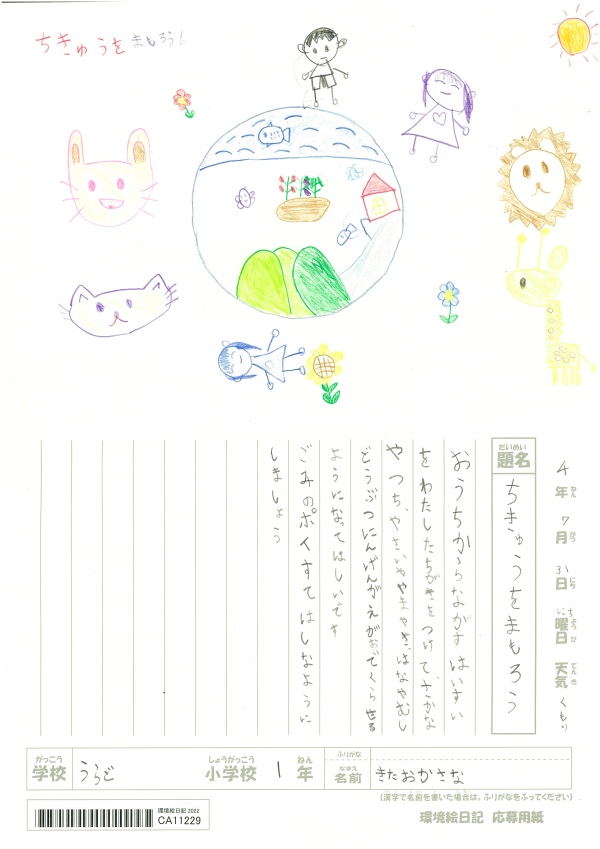 ちきゅうをまもろう!
4年 7月 31日 日曜日 天気 くもり
ねん がつ にち にちようび てんき
だいめい
題名
ちきゅうをまもろう
おうちからながすはいすい
をわたしたちがきをつけて、さかな
やつち、やさいややまやき、はなやむし
どうぶつにんげんがえがおでくらせる
ようになってほしいです
ごみのポイすてはしなように
しましょう
がっこう しょうがっこう ねん ふりがな
学校 うらど 小学校 1年
なまえ
名前 きたおかさな
(漢字で名前を書いた場合は、ふりがなをふってください)
環境絵日記 2022
CA11229
環境絵日記 応募用紙